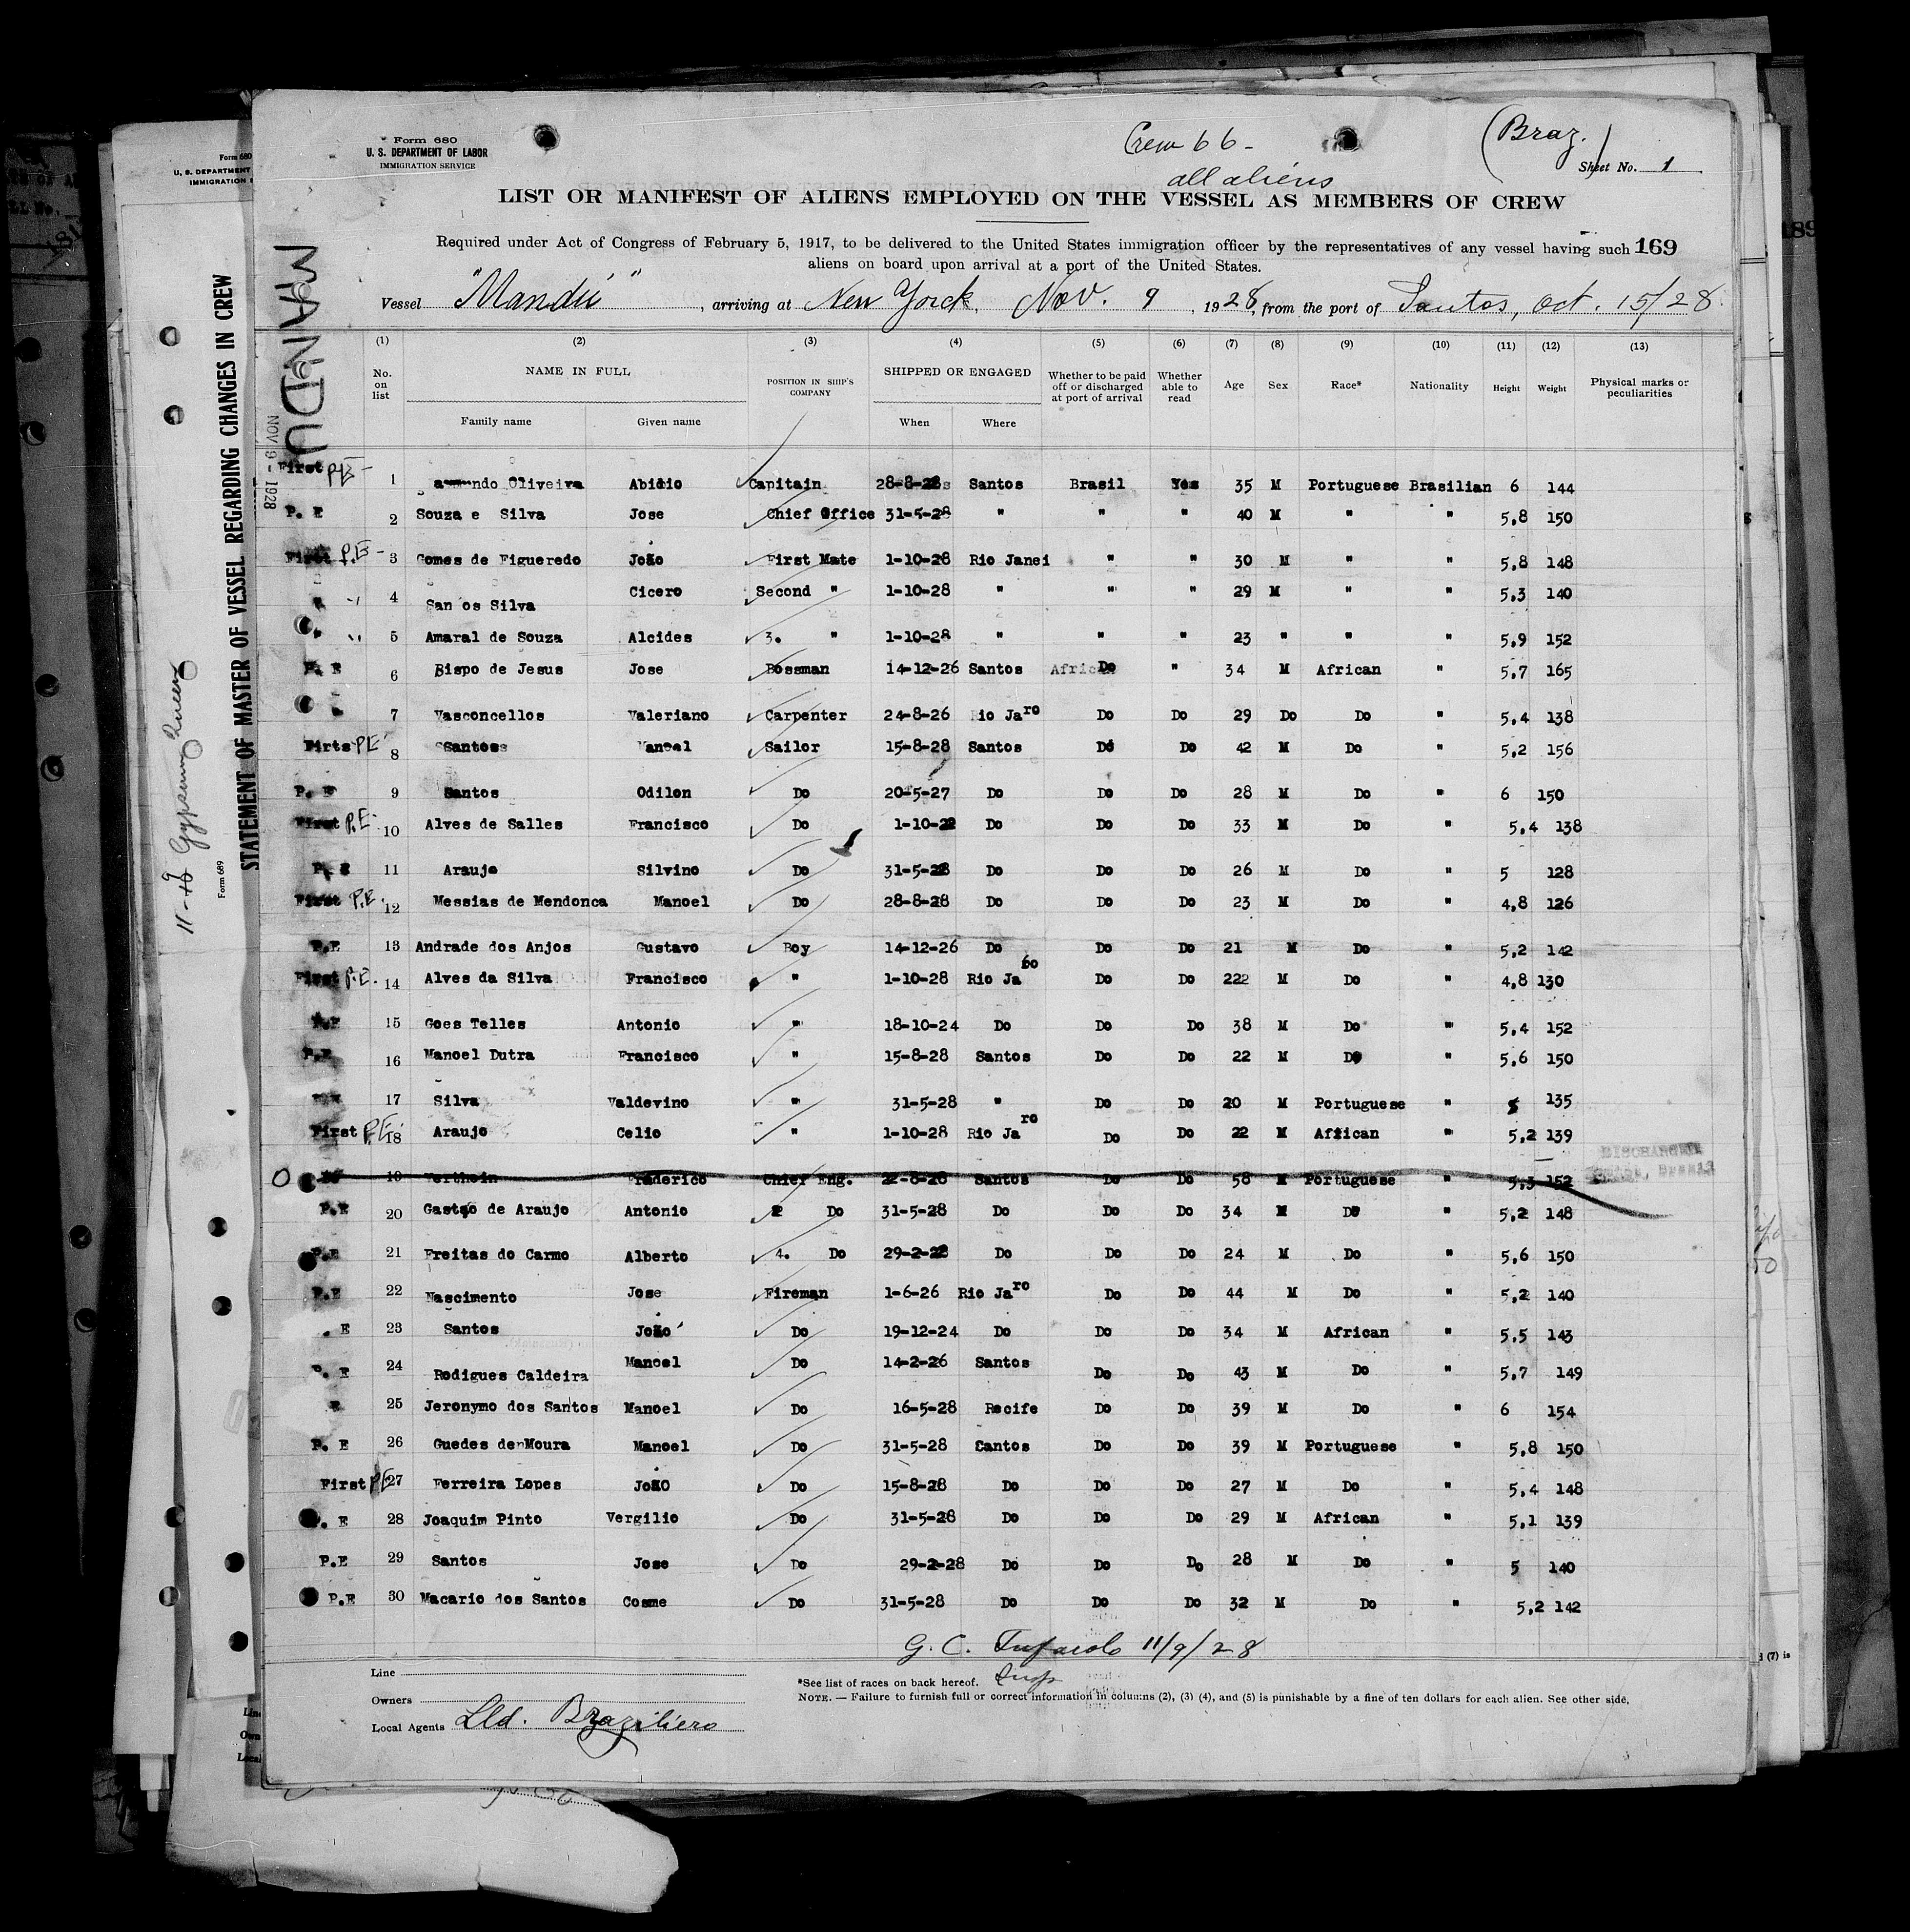 Form 680
U. S. DEPARTMENT OF LABOR
IMMIGRATION SERVICE
Crew 66 -
all aliens
(Braz.)
Sheet No. 1
LIST OR MANIFEST OF ALIENS EMPLOYED ON THE VESSEL AS MEMBERS OF CREW
Required under Act of Congress of February 5, 1917, to be delivered to the United States immigration officer by the representatives of any vessel having such 169
aliens on board upon arrival at a port of the United States.
Vessel "Mandú" , arriving at New York, Nov. 9 , 1928, from the port of Santos, Oct. 15/28
MANDU
NOV 9 - 1928
(1) (2) (3) (4) (5) (6) (7) (8) (9) (10) (11) (12) (13)
No. on list NAME IN FULL POSITION IN SHIP'S COMPANY SHIPPED OR ENGAGED Whether to be paid off or discharged at port of arrival Whether able to read Age Sex Race* Nationality Height Weight Physical marks or peculiarities
Family name Given name When Where
First PE - 1 Oliveira Abidio Capitain 28-8-28 Santos Brasil Yes 35 M Portuguese Brasilian 6 144
P. E 2 Souza e Silva Jose Chief Office 31-5-28 " " " 40 M " " 5,8 150
First P.E - 3 Gomes de Figueredo João First Mate 1-10-28 Rio Janei " " 30 M " " 5,8 148
" " 4 San os Silva Cicero Second " 1-10-28 " " " 29 M " " 5,3 140
" " 5 Amaral de Souza Alcides 3. " 1-10-28 " " " 23 " " " 5,9 152
P. E 6 Bispo de Jesus Jose Bossman 14-12-26 Santos Do " 34 M African " 5,7 165
7 Vasconcellos Valeriano Carpenter 24-8-26 Rio Jaro Do Do 29 Do Do " 5,4 138
Firts PE 8 Santos Manoel Sailor 15-8-28 Santos Do Do 42 M Do " 5,2 156
P. E 9 Santos Odilon Do 20-5-27 Do Do Do 28 M Do " 6 150
First P.E- 10 Alves de Salles Francisco Do 1-10-28 Do Do Do 33 M Do " 5,4 138
P. E 11 Araujo Silvino Do 31-5-28 Do Do Do 26 M Do " 5 128
First P.E. 12 Messias de Mendonca Manoel Do 28-8-28 Do Do Do 23 M Do " 4,8 126
P.E 13 Andrade dos Anjos Gustavo Boy 14-12-26 Do Do Do 21 M Do " 5,2 142
First P.E. 14 Alves da Silva Francisco " 1-10-28 Rio Ja Do Do 222 M Do " 4,8 130
P.E 15 Goes Telles Antonio " 18-10-24 Do Do Do 38 M Do " 5,4 152
P.E 16 Manoel Dutra Francisco " 15-8-28 Santos Do Do 22 M Do " 5,6 150
17 Silva Valdevino " 31-5-28 " Do Do 20 M Portuguese " 5 135
First P.E. 18 Araujo Celio " 1-10-28 Rio Jaro Do Do 22 M Aftican " 5,2 139
19 Frederico Chief Eng. 22-8-28 Santos Do Do 58 M Portuguese " 5,3 152 DISCHARGED
P.E 20 Gastao de Araujo Antonio 2 Do 31-5-28 Do Do Do 34 M Do " 5,2 148
P.E 21 Freitas do Carmo Alberto 4. Do 29-2-28 Do Do Do 24 M Do " 5,6 150
P.E 22 Nascimento Jose Fireman 1-6-26 Rio Jaro Do Do 44 M Do " 5,2 140
. E 23 Santos João Do 19-12-24 Do Do Do 34 M African " 5,5 143
P. E 24 Rodigues Caldeira Manoel Do 14-2-26 Santos Do Do 43 M Do " 5,7 149
E 25 Jeronymo dos Santos Manoel Do 16-5-28 Recife Do Do 39 M Do " 6 154
P. E 26 Guedes de Moura Manoel Do 31-5-28 Santos Do Do 39 M Portuguese " 5,8 150
First PE 27 Ferreira Lopes JoãO Do 15-8-28 Do Do Do 27 M Do " 5,4 148
. E 28 Joaquim Pinto Vergilio Do 31-5-28 Do Do Do 29 M African " 5,1 139
P.E 29 Santos Jose Do 29-2-28 Do Do Do 28 M Do " 5 140
P.E 30 Macario dos Santos Cosme Do 31-5-28 Do Do Do 32 M Do " 5,2 142
G. C. 11/9/28
Insp
Line
Owners
Local Agents Lld. Braziliero
*See list of races on back hereof.
NOTE. — Failure to furnish full or correct information in columns (2), (3) (4), and (5) is punishable by a fine of ten dollars for each alien. See other side.
Form 680
U. S. DEPARTMENT
IMMIGRATION
STATEMENT OF MASTER OF VESSEL REGARDING CHANGES IN CREW
Form 689
Gypsum Queen
189
(7) is